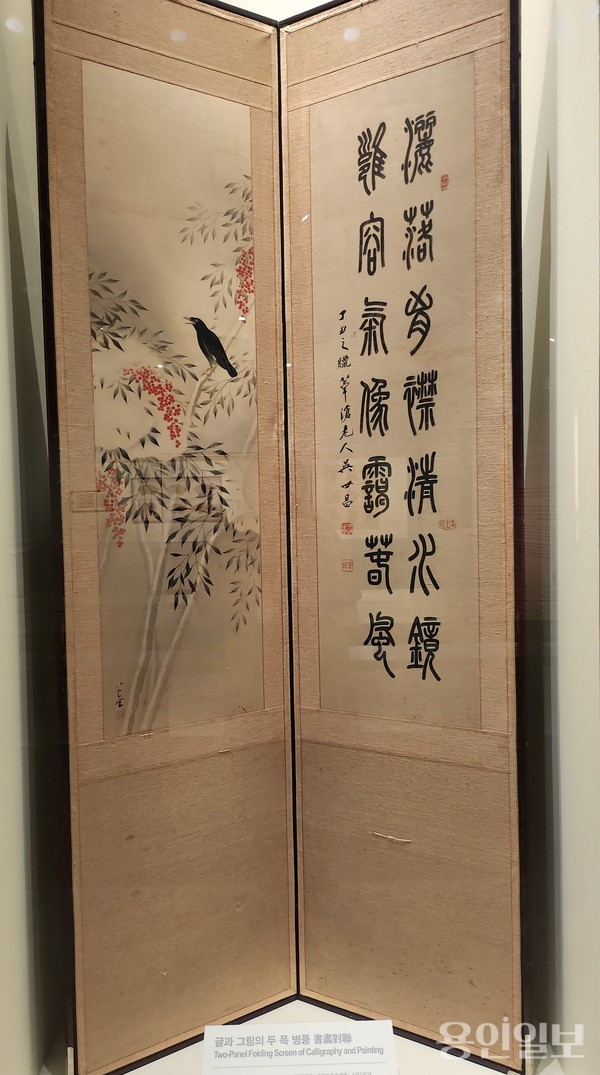 灑落胸襟清水鏡
雍容氣像靄春風
丁丑之臘 葦滄老人 吳世昌
글과 그림의 두 폭 병풍 書畵對聯
Two-Panel Folding Screen of Calligraphy and Painting
용인일보